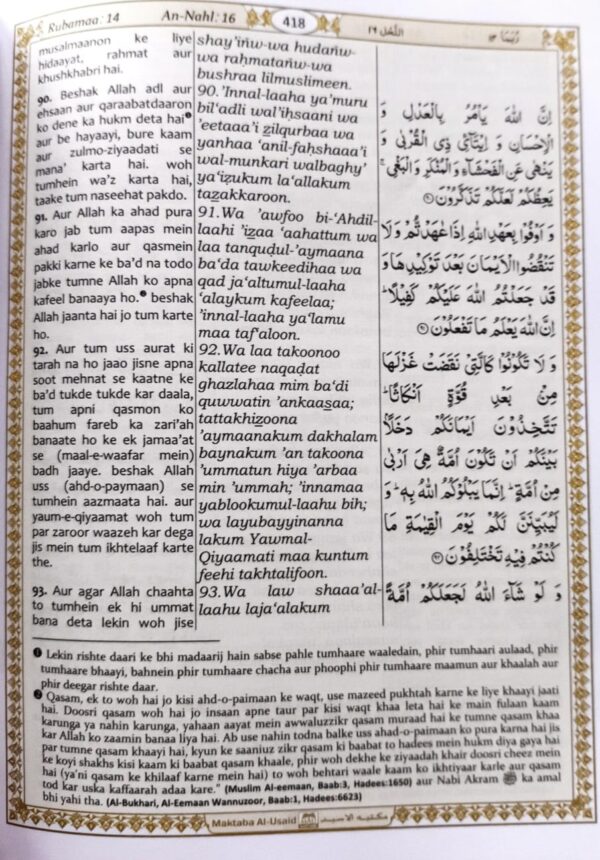 Rubamaa: 14
An-Nahl: 16
418
النّحل ١٦
رُبَمَا ١٤
musalmaanon ke liye
hidaayat, rahmat aur
khushkhabri hai.
90. Beshak Allah adl aur
ehsaan aur qaraabatdaaron
ko dene ka hukm deta hai❶
aur be hayaayi, bure kaam
aur zulmo-ziyaadati se
mana' karta hai. woh
tumhein wa'z karta hai,
taake tum naseehat pakdo.
91. Aur Allah ka ahad pura
karo jab tum aapas mein
ahad karlo aur qasmein
pakki karne ke ba'd na todo
jabke tumne Allah ko apna
kafeel banaaya ho.❷ beshak
Allah jaanta hai jo tum karte
ho.
92. Aur tum uss aurat ki
tarah na ho jaao jisne apna
soot mehnat se kaatne ke
ba'd tukde tukde kar daala,
tum apni qasmon ko
baahum fareb ka zari'ah
banaate ho ke ek jamaa'at
se (maal-e-waafar mein)
badh jaaye. beshak Allah
uss (ahd-o-paymaan) se
tumhein aazmaata hai. aur
yaum-e-qiyaamat woh tum
par zaroor waazeh kar dega
jis mein tum ikhtelaaf karte
the.
93. Aur agar Allah chaahta
to tumhein ek hi ummat
bana deta lekin woh jise
shay'iñw-wa hudañw-
wa raḥmatañw-wa
bushraa lilmuslimeen.
90.'Innal-laaha ya'muru
bil‘adli wal'iḥsaani wa
'eetaaa'i z̲ilqurbaa wa
yanhaa ‘anil-faḥshaaa'i
wal-munkari walbaghy'
ya‘iz̲ukum la‘allakum
taz̲akkaroon.
91.Wa 'awfoo bi-‘Ahdil-
laahi 'iz̲aa ‘aahattum wa
laa tanquḍul-'aymaana
ba‘da tawkeedihaa wa
qad ja‘altumul-laaha
‘alaykum kafeelaa;
'innal-laaha ya‘lamu
maa taf‘aloon.
92.Wa laa takoonoo
kallatee naqaḍat
ghazlahaa mim ba‘di
quwwatin 'ankaas̲aa;
tattakhiz̲oona
'aymaanakum dakhalam
baynakum 'an takoona
'ummatun hiya 'arbaa
min 'ummah; 'innamaa
yablookumul-laahu bih;
wa layubayyinanna
lakum Yawmal-
Qiyaamati maa kuntum
feehi takhtalifoon.
93.Wa law shaaa'al-
laahu laja‘alakum
اِنَّ اللّٰهَ يَاْمُرُ بِالْعَدْلِ وَ
الْاِحْسَانِ وَ اِيْتَآئِ ذِي الْقُرْبٰى وَ
يَنْهٰى عَنِ الْفَحْشَآءِ وَ الْمُنْكَرِ وَ الْبَغْيِ ۚ
يَعِظُكُمْ لَعَلَّكُمْ تَذَكَّرُوْنَ ۝٩٠
وَ اَوْفُوْا بِعَهْدِ اللّٰهِ اِذَا عٰهَدْتُّمْ وَ لَا
تَنْقُضُوا الْاَيْمَانَ بَعْدَ تَوْكِيْدِهَا وَ
قَدْ جَعَلْتُمُ اللّٰهَ عَلَيْكُمْ كَفِيْلًا ؕ
اِنَّ اللّٰهَ يَعْلَمُ مَا تَفْعَلُوْنَ ۝٩١
وَ لَا تَكُوْنُوْا كَالَّتِيْ نَقَضَتْ غَزْلَهَا
مِنْۢ بَعْدِ قُوَّةٍ اَنْكَاثًا ؕ
تَتَّخِذُوْنَ اَيْمَانَكُمْ دَخَلًۢا
بَيْنَكُمْ اَنْ تَكُوْنَ اُمَّةٌ هِيَ اَرْبٰى
مِنْ اُمَّةٍ ؕ اِنَّمَا يَبْلُوْكُمُ اللّٰهُ بِهٖ ؕ وَ
لَيُبَيِّنَنَّ لَكُمْ يَوْمَ الْقِيٰمَةِ مَا
كُنْتُمْ فِيْهِ تَخْتَلِفُوْنَ ۝٩٢
وَ لَوْ شَآءَ اللّٰهُ لَجَعَلَكُمْ اُمَّةً
❶ Lekin rishte daari ke bhi madaarij hain sabse pahle tumhaare waaledain, phir tumhaari aulaad, phir
tumhaare bhaayi, bahnein phir tumhaare chacha aur phoophi phir tumhaare maamun aur khaalah aur
phir deegar rishte daar.
❷ Qasam, ek to woh hai jo kisi ahd-o-paimaan ke waqt, use mazeed pukhtah karne ke liye khaayi jaati
hai. Doosri qasam woh hai jo insaan apne taur par kisi waqt khaa leta hai ke main fulaan kaam
karunga ya nahin karunga, yahaan aayat mein awwaluzzikr qasam muraad hai ke tumne qasam khaa
kar Allah ko zaamin banaa liya hai. Ab use nahin todna balke uss ahad-o-paimaan ko pura karna hai jis
par tumne qasam khaayi hai, kyun ke saaniuz zikr qasam ki baabat to hadees mein hukm diya gaya hai
ke koyi shakhs kisi kaam ki baabat qasam khaale, phir woh dekhe ke ziyaadah khair doosri cheez mein
hai (ya'ni qasam ke khilaaf karne mein hai) to woh behtari waale kaam ko ikhtiyaar karle aur qasam
tod kar uska kaffaarah adaa kare." (Muslim Al-eemaan, Baab:3, Hadees:1650) aur Nabi Akram ﷺ ka amal
bhi yahi tha. (Al-Bukhari, Al-Eemaan Wannuzoor, Baab:1, Hadees:6623)
Maktaba Al-Usaid